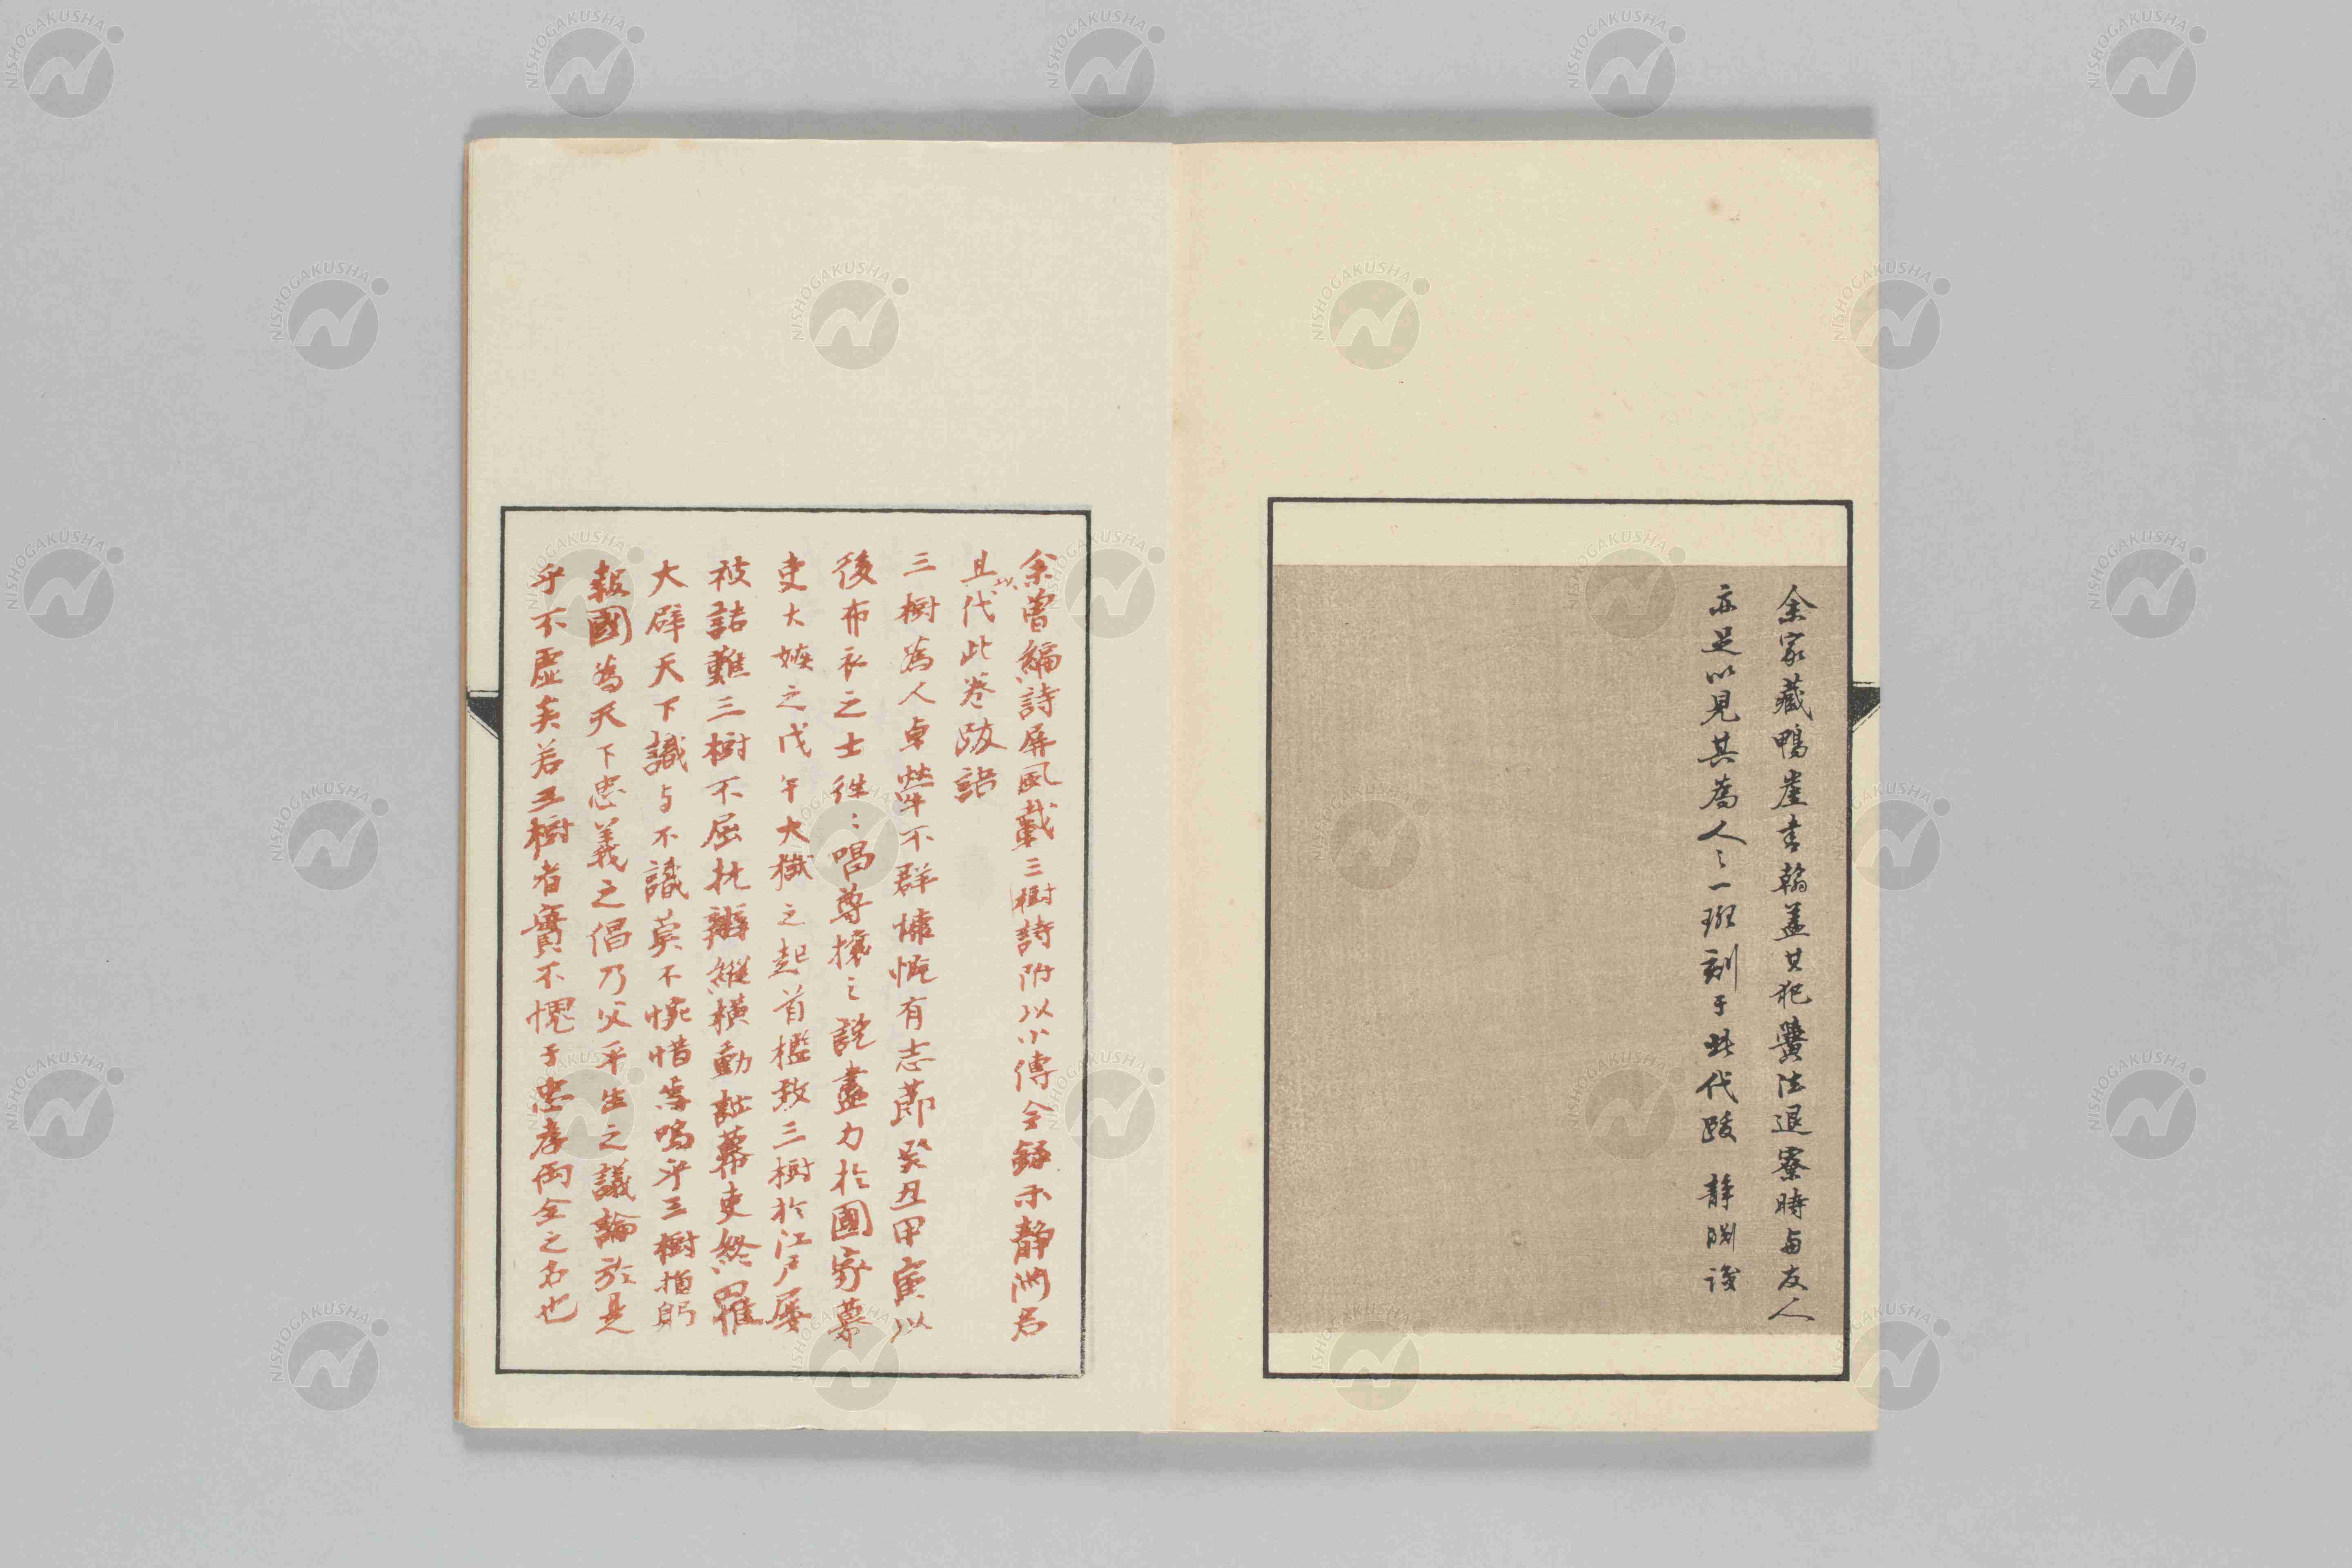 余家藏鴨崖書翰蓋其犯黌法退寮時与友人
亦足以見其為人之一斑刻于此代跋 静淵識
余曽編詩屏風載三樹詩附以小傳今録示静淵君
且以代此巻跋語
三樹為人卓犖不群慷慨有志節癸丑甲寅以
後布衣之士往〻唱尊攘之説盡力於國家幕
吏大嫉之戊午大獄之起首檻致三樹於江戸屡
被詰難三樹不屈抗辯縦横動詆幕吏終罹
大辟天下識与不識莫不惋惜焉嗚乎三樹捐躬
報國為天下忠義之倡乃父平生之議論於是
乎不虚矣若三樹者實不愧于忠孝両全之名也
NISHOGAKUSHA